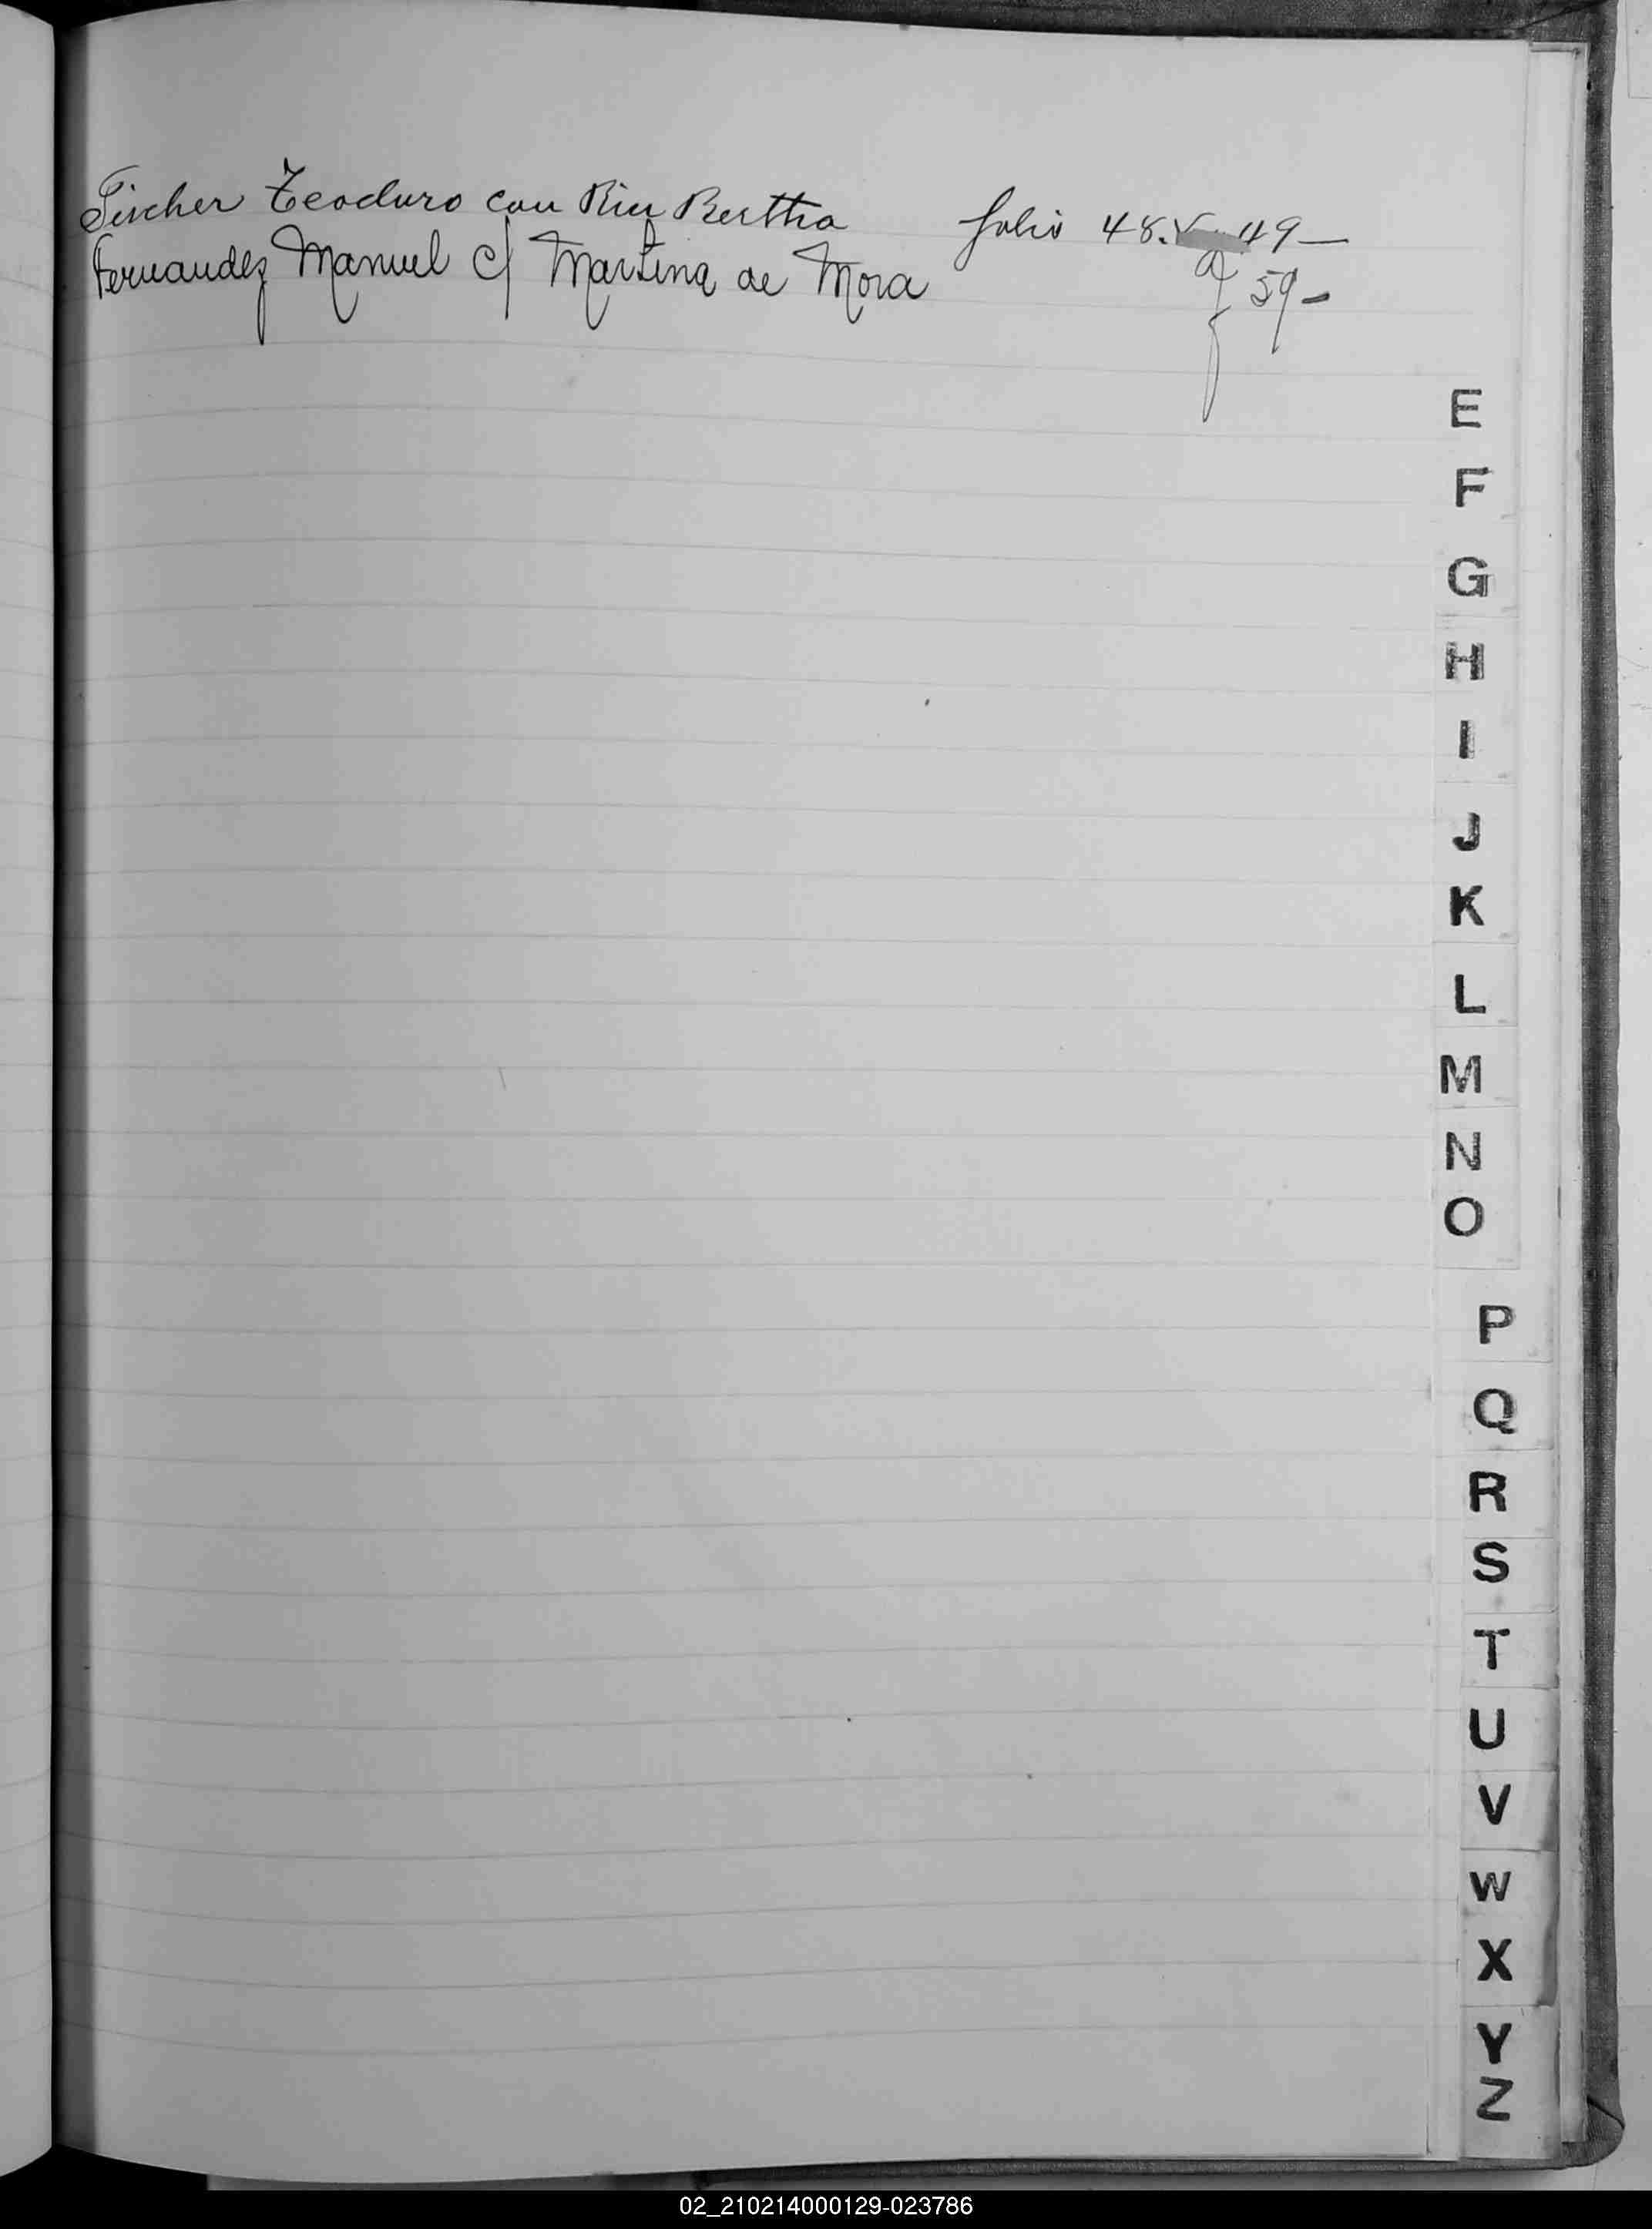 Fischer Teoduro con Riu Bertha folio 48. 49—
Fernandez Manuel c/ Martina de Mora f 59-
E
F
G
H
I
J
K
L
M
N
O
P
Q
R
S
T
U
V
W
X
Y
Z
02_210214000129-023786